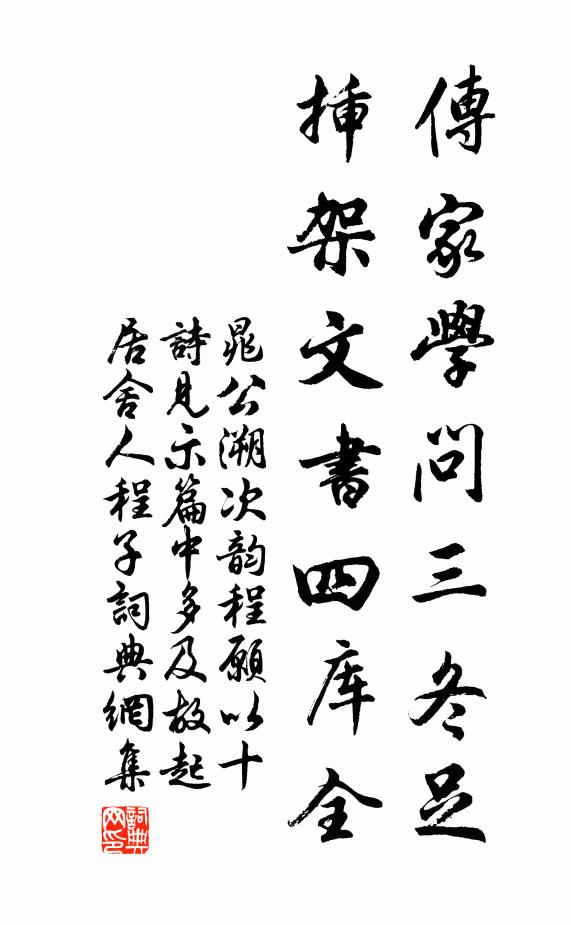 傳家學問三冬足
揷架文書四库全
晁公溯次韵程願以十
詩見示篇中多及故起
居舍人程子詞典網集
詞典網印